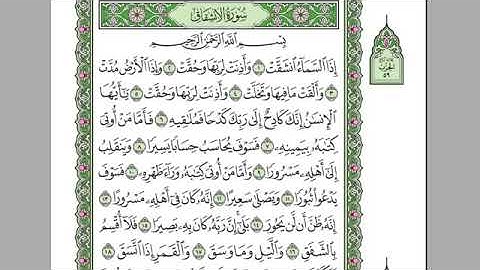 سُورَةُ الِانشِقَاقِ
بِسْمِ اللَّهِ الرَّحْمَٰنِ الرَّحِيمِ
إِذَا السَّمَاءُ انشَقَّتْ ١ وَأَذِنَتْ لِرَبِّهَا وَحُقَّتْ ٢ وَإِذَا الْأَرْضُ مُدَّتْ
٣ وَأَلْقَتْ مَا فِيهَا وَتَخَلَّتْ ٤ وَأَذِنَتْ لِرَبِّهَا وَحُقَّتْ ٥ يَا أَيُّهَا
الْإِنسَانُ إِنَّكَ كَادِحٌ إِلَىٰ رَبِّكَ كَدْحًا فَمُلَاقِيهِ ٦ فَأَمَّا مَنْ أُوتِيَ
كِتَابَهُ بِيَمِينِهِ ٧ فَسَوْفَ يُحَاسَبُ حِسَابًا يَسِيرًا ٨ وَيَنقَلِبُ
إِلَىٰ أَهْلِهِ مَسْرُورًا ٩ وَأَمَّا مَنْ أُوتِيَ كِتَابَهُ وَرَاءَ ظَهْرِهِ ١٠ فَسَوْفَ
يَدْعُو ثُبُورًا ١١ وَيَصْلَىٰ سَعِيرًا ١٢ إِنَّهُ كَانَ فِي أَهْلِهِ مَسْرُورًا ١٣
إِنَّهُ ظَنَّ أَن لَّن يَحُورَ ١٤ بَلَىٰ إِنَّ رَبَّهُ كَانَ بِهِ بَصِيرًا ١٥ فَلَا أُقْسِمُ
بِالشَّفَقِ ١٦ وَاللَّيْلِ وَمَا وَسَقَ ١٧ وَالْقَمَرِ إِذَا اتَّسَقَ ١٨
الحزب
٥٩